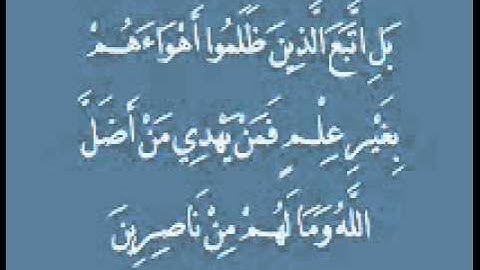 بَلِ اتَّبَعَ الَّذِينَ ظَلَمُوا أَهْوَاءَهُمْ
بِغَيْرِ عِلْمٍ فَمَنْ يَهْدِي مَنْ أَضَلَّ
اللَّهُ وَمَا لَهُمْ مِنْ نَاصِرِينَ